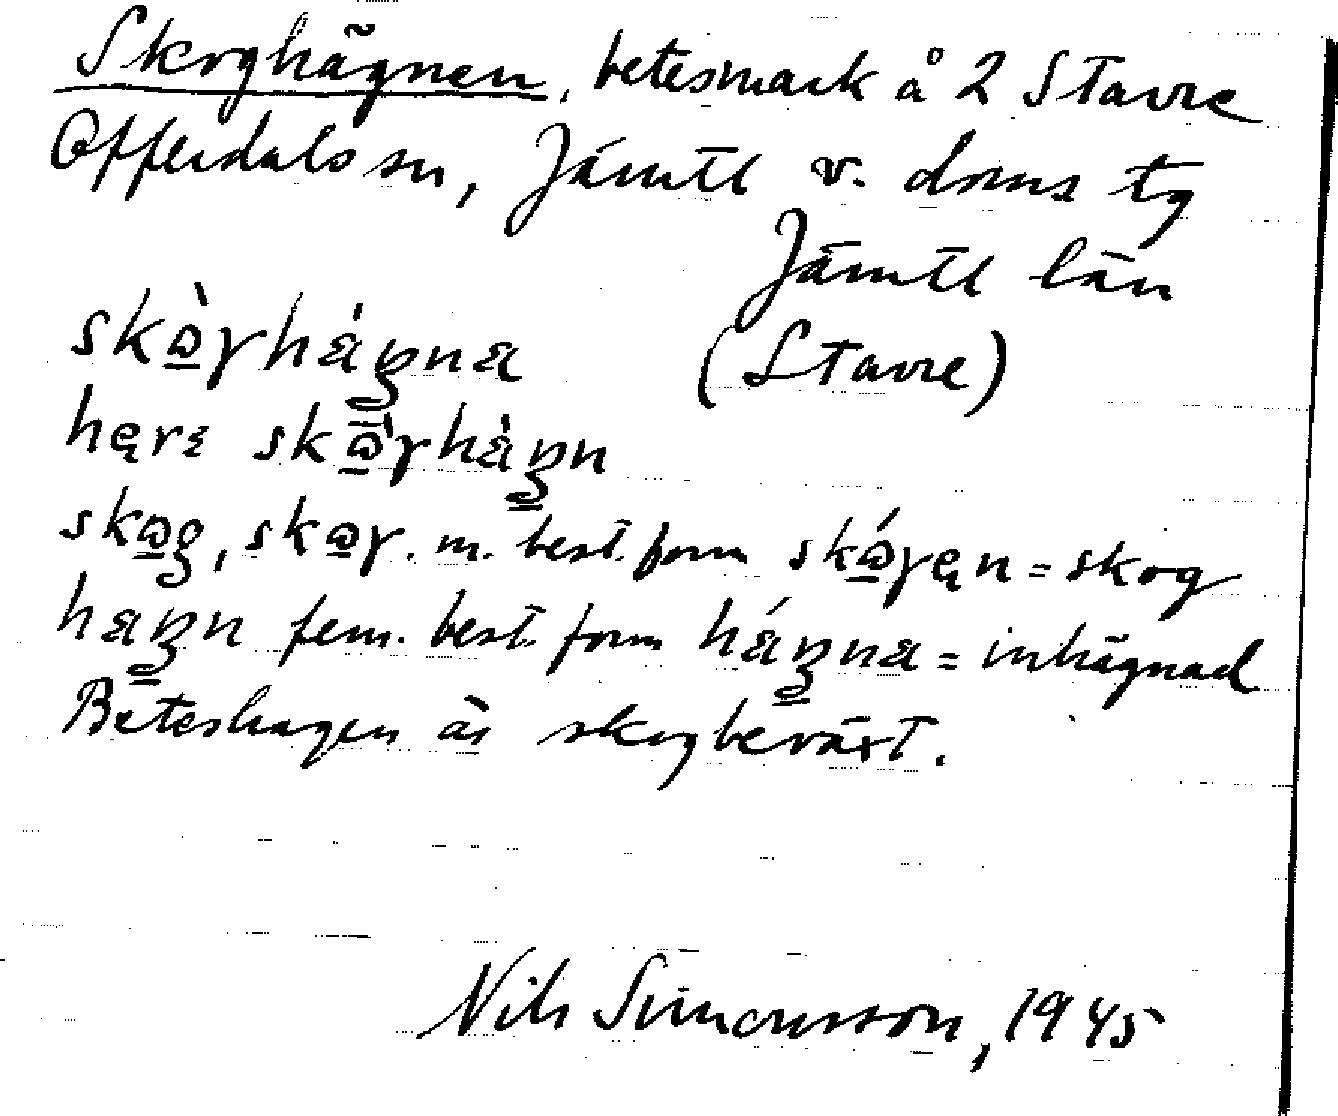 Skoghägnen, betesmark å 2 Stavre
Offerdals sn, Jämtl v. doms tg
Jämtl län
skɷ̀γhágna (Stavre)
hęri skɷ̄̀γhàgn
skɷg, skɷγ. m. best. form skɷ́γęn = skog
hagn fem. best. form hágna = inhägnad
Beteshagen är skogbeväxt.
Nils Simonsson, 1945